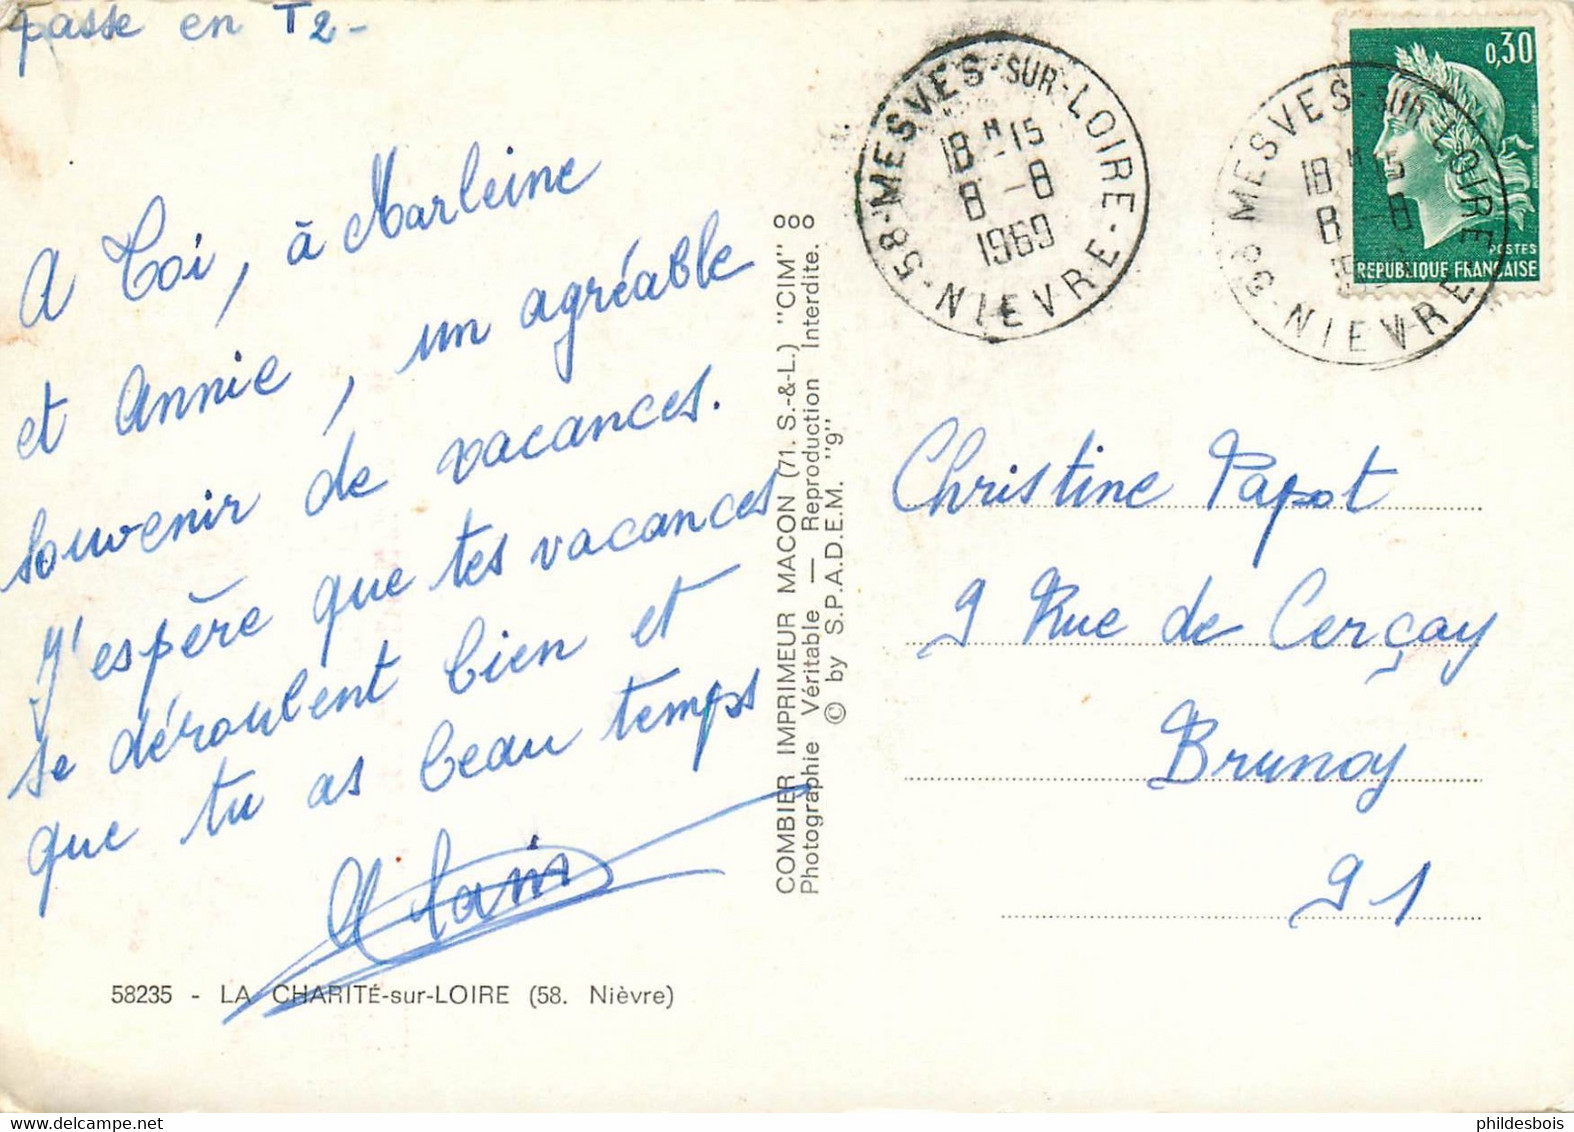 passe en T2-
A Toi, à Marleine
et Annie, un agréable
souvenir de vacances.
J'espère que tes vacances
se déroulent bien et
que tu as beau temps
Alain
58235 - LA CHARITÉ-sur-LOIRE (58. Nièvre)
COMBIER IMPRIMEUR MACON (71. S.-&-L.) "CIM" 000
Photographie Véritable — Reproduction Interdite.
© by S.P.A.D.E.M. "9"
58-MESVES-SUR-LOIRE-NIEVRE
18H15
8-8
1969
58 MESVES-SUR-LOIRE NIEVRE
18H15
8-8
0,30
POSTES
REPUBLIQUE FRANÇAISE
Christine Papot
9 Rue de Cerçay
Brunoy
91
phildesbois